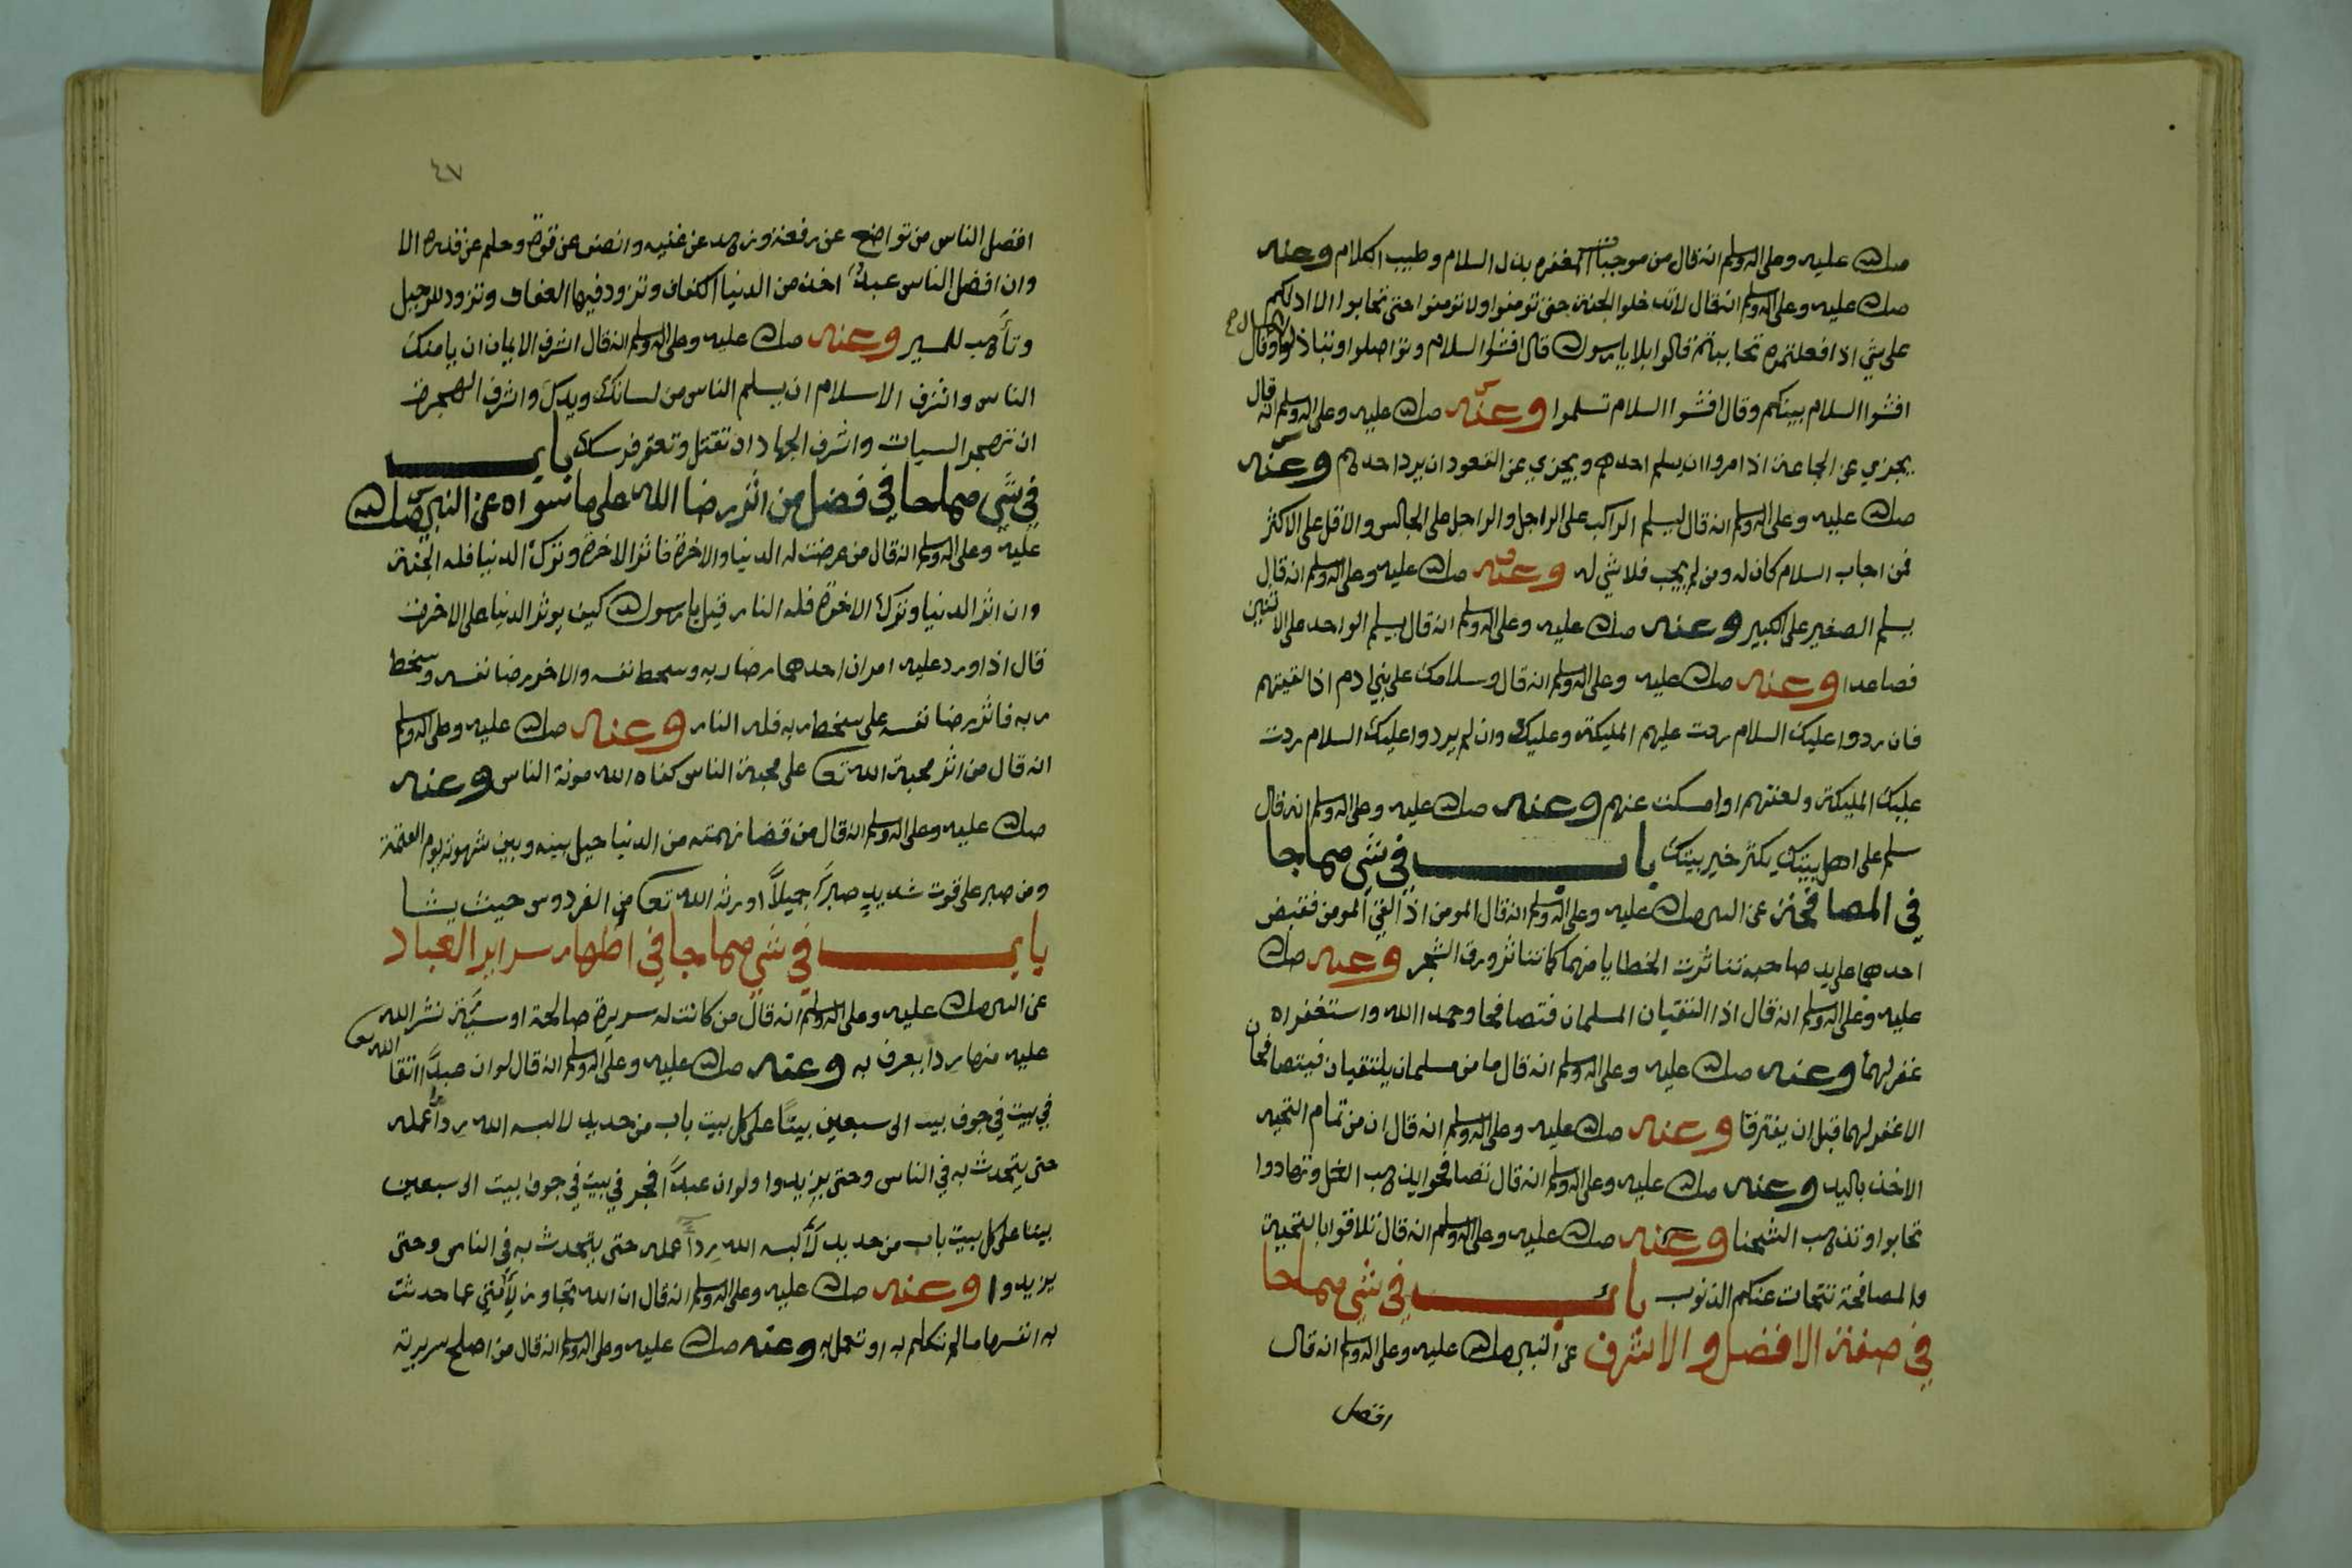 صلى الله عليه وعلى اله وسلم انه قال من موجبات المغفره بذل السلام وطيب الكلام وعنه
صلى الله عليه وعلى اله وسلم انه قال لا تدخلوا الجنة حتى تومنوا ولا تومنوا حتى تحابوا الا ادلكم
على شي اذا فعلتموه تحاببتم قالوا بلا يا رسول الله قال افشوا السلام وتواصلوا وتباذلوا وقال
افشوا السلام بينكم وقال افشوا السلام تسلموا وعنه صلى الله عليه وعلى اله وسلم انه قال
يجزي عن الجماعة اذا مروا ان يسلم احدهم ويجزي عن القعود ان يرد احدهم وعنه
صلى الله عليه وعلى اله وسلم انه قال ليسلم الراكب على الراجل والراجل على الجالس والاقل على الاكثر
فمن اجاب السلام كان له ومن لم يجب فلا شي له وعنه صلى الله عليه وعلى اله وسلم انه قال
يسلم الصغير على الكبير وعنه صلى الله عليه وعلى اله وسلم انه قال يسلم الواحد على الاثنين
فصاعدا وعنه صلى الله عليه وعلى اله وسلم انه قال وسلامك على بني ادم اذا لقيتهم
فان ردوا عليك السلام ردت عليهم المليكة وعليك وان لم يردوا عليك السلام ردت
عليك المليكة ولعنتهم او امسكت عنهم وعنه صلى الله عليه وعلى اله وسلم انه قال
سلم على اهل بيتك يكثر خير بيتك باب في شي مما جا
في المصافحة عن النبي صلى الله عليه وعلى اله وسلم انه قال المومن اذا لقي المومن فقبض
احدهما على يد صاحبه تناثرت الخطايا منهما كما تتناثر ورق الشجر وعنه صلى الله
عليه وعلى اله وسلم انه قال اذا التقيان المسلمان فتصافحا وحمدا الله واستغفراه
غفر لهما وعنه صلى الله عليه وعلى اله وسلم انه قال ما من مسلمان يلتقيان فيتصافحان
الا غفر لهما قبل ان يفترقا وعنه صلى الله عليه وعلى اله وسلم انه قال ان من تمام التحيه
الاخذ باليد وعنه صلى الله عليه وعلى اله وسلم انه قال تصافحوا يذهب الغل وتهادوا
تحابوا وتذهب الشحنا وعنه صلى الله عليه وعلى اله وسلم انه قال تلاقوا بالتحية
والمصافحة تتحات عنكم الذنوب باب في شي مما جا
في صفة الافضل والاشرف عن النبي صلى الله عليه وعلى اله وسلم انه قال
افضل
٤٧
افضل الناس من تواضع عن رفعة وزهد عن غنيه وانصف عن قوة وحلم عن قدره الا
وان افضل الناس عبدا اخذ من الدنيا الكفاف وتزود فيها العفاف وتزود للرحيل
وتأهب للمسير وعنه صلى الله عليه وعلى اله وسلم انه قال اشرف الايمان ان يامنك
الناس واشرف الاسلام ان يسلم الناس من لسانك ويدك واشرف الهجرة
ان تهجر السيات واشرف الجهاد ان تقتل وتعقر فرسك باب
في شي مما جا في فضل من اثر رضا الله على ما سواه عن النبي صلى الله
عليه وعلى اله وسلم انه قال من عرضت له الدنيا والاخرة فاثر الاخرة وترك الدنيا فله الجنة
وان اثر الدنيا وترك الاخرة فله النار قيل يا رسول الله كيف يوثر الدنيا على الاخرة
قال اذا ورد عليه امران احدهما رضا ربه وسخط نفسه والاخر رضا نفسه وسخط
ربه فاثر رضا نفسه على سخط ربه فله النار وعنه صلى الله عليه وعلى اله وسلم
انه قال من اثر محبة الله تعا على محبة الناس كفاه الله مونة الناس وعنه
صلى الله عليه وعلى اله وسلم انه قال من قضا نهمته من الدنيا حيل بينه وبين شهوته يوم القيمة
ومن صبر على قوت شديد صبرا جميلا اورثه الله تعا من الفردوس حيث يشا
باب في شي مما جا في اظهار سراير العباد
عن النبي صلى الله عليه وعلى اله وسلم انه قال من كانت له سريرة صالحة او سيئة نشر الله
عليه منها ردا يعرف به وعنه صلى الله عليه وعلى اله وسلم انه قال لو ان عبدا اتقا الله تعا
في بيت في جوف بيت الى سبعين بيتا على كل بيت باب من حديد لالبسه الله ردا عمله
حتى يتحدث به في الناس وحتى يزيدوا ولو ان عبدا فجر في بيت في جوف بيت الى سبعين
بيتا على كل بيت باب من حديد لألبسه الله ردا عمله حتى يتحدث به في الناس وحتى
يزيدوا وعنه صلى الله عليه وعلى اله وسلم انه قال ان الله تجاوز لأمتي عما حدثت
به انفسها ما لم تتكلم به او تعمل به وعنه صلى الله عليه وعلى اله وسلم انه قال من اصلح سريرته